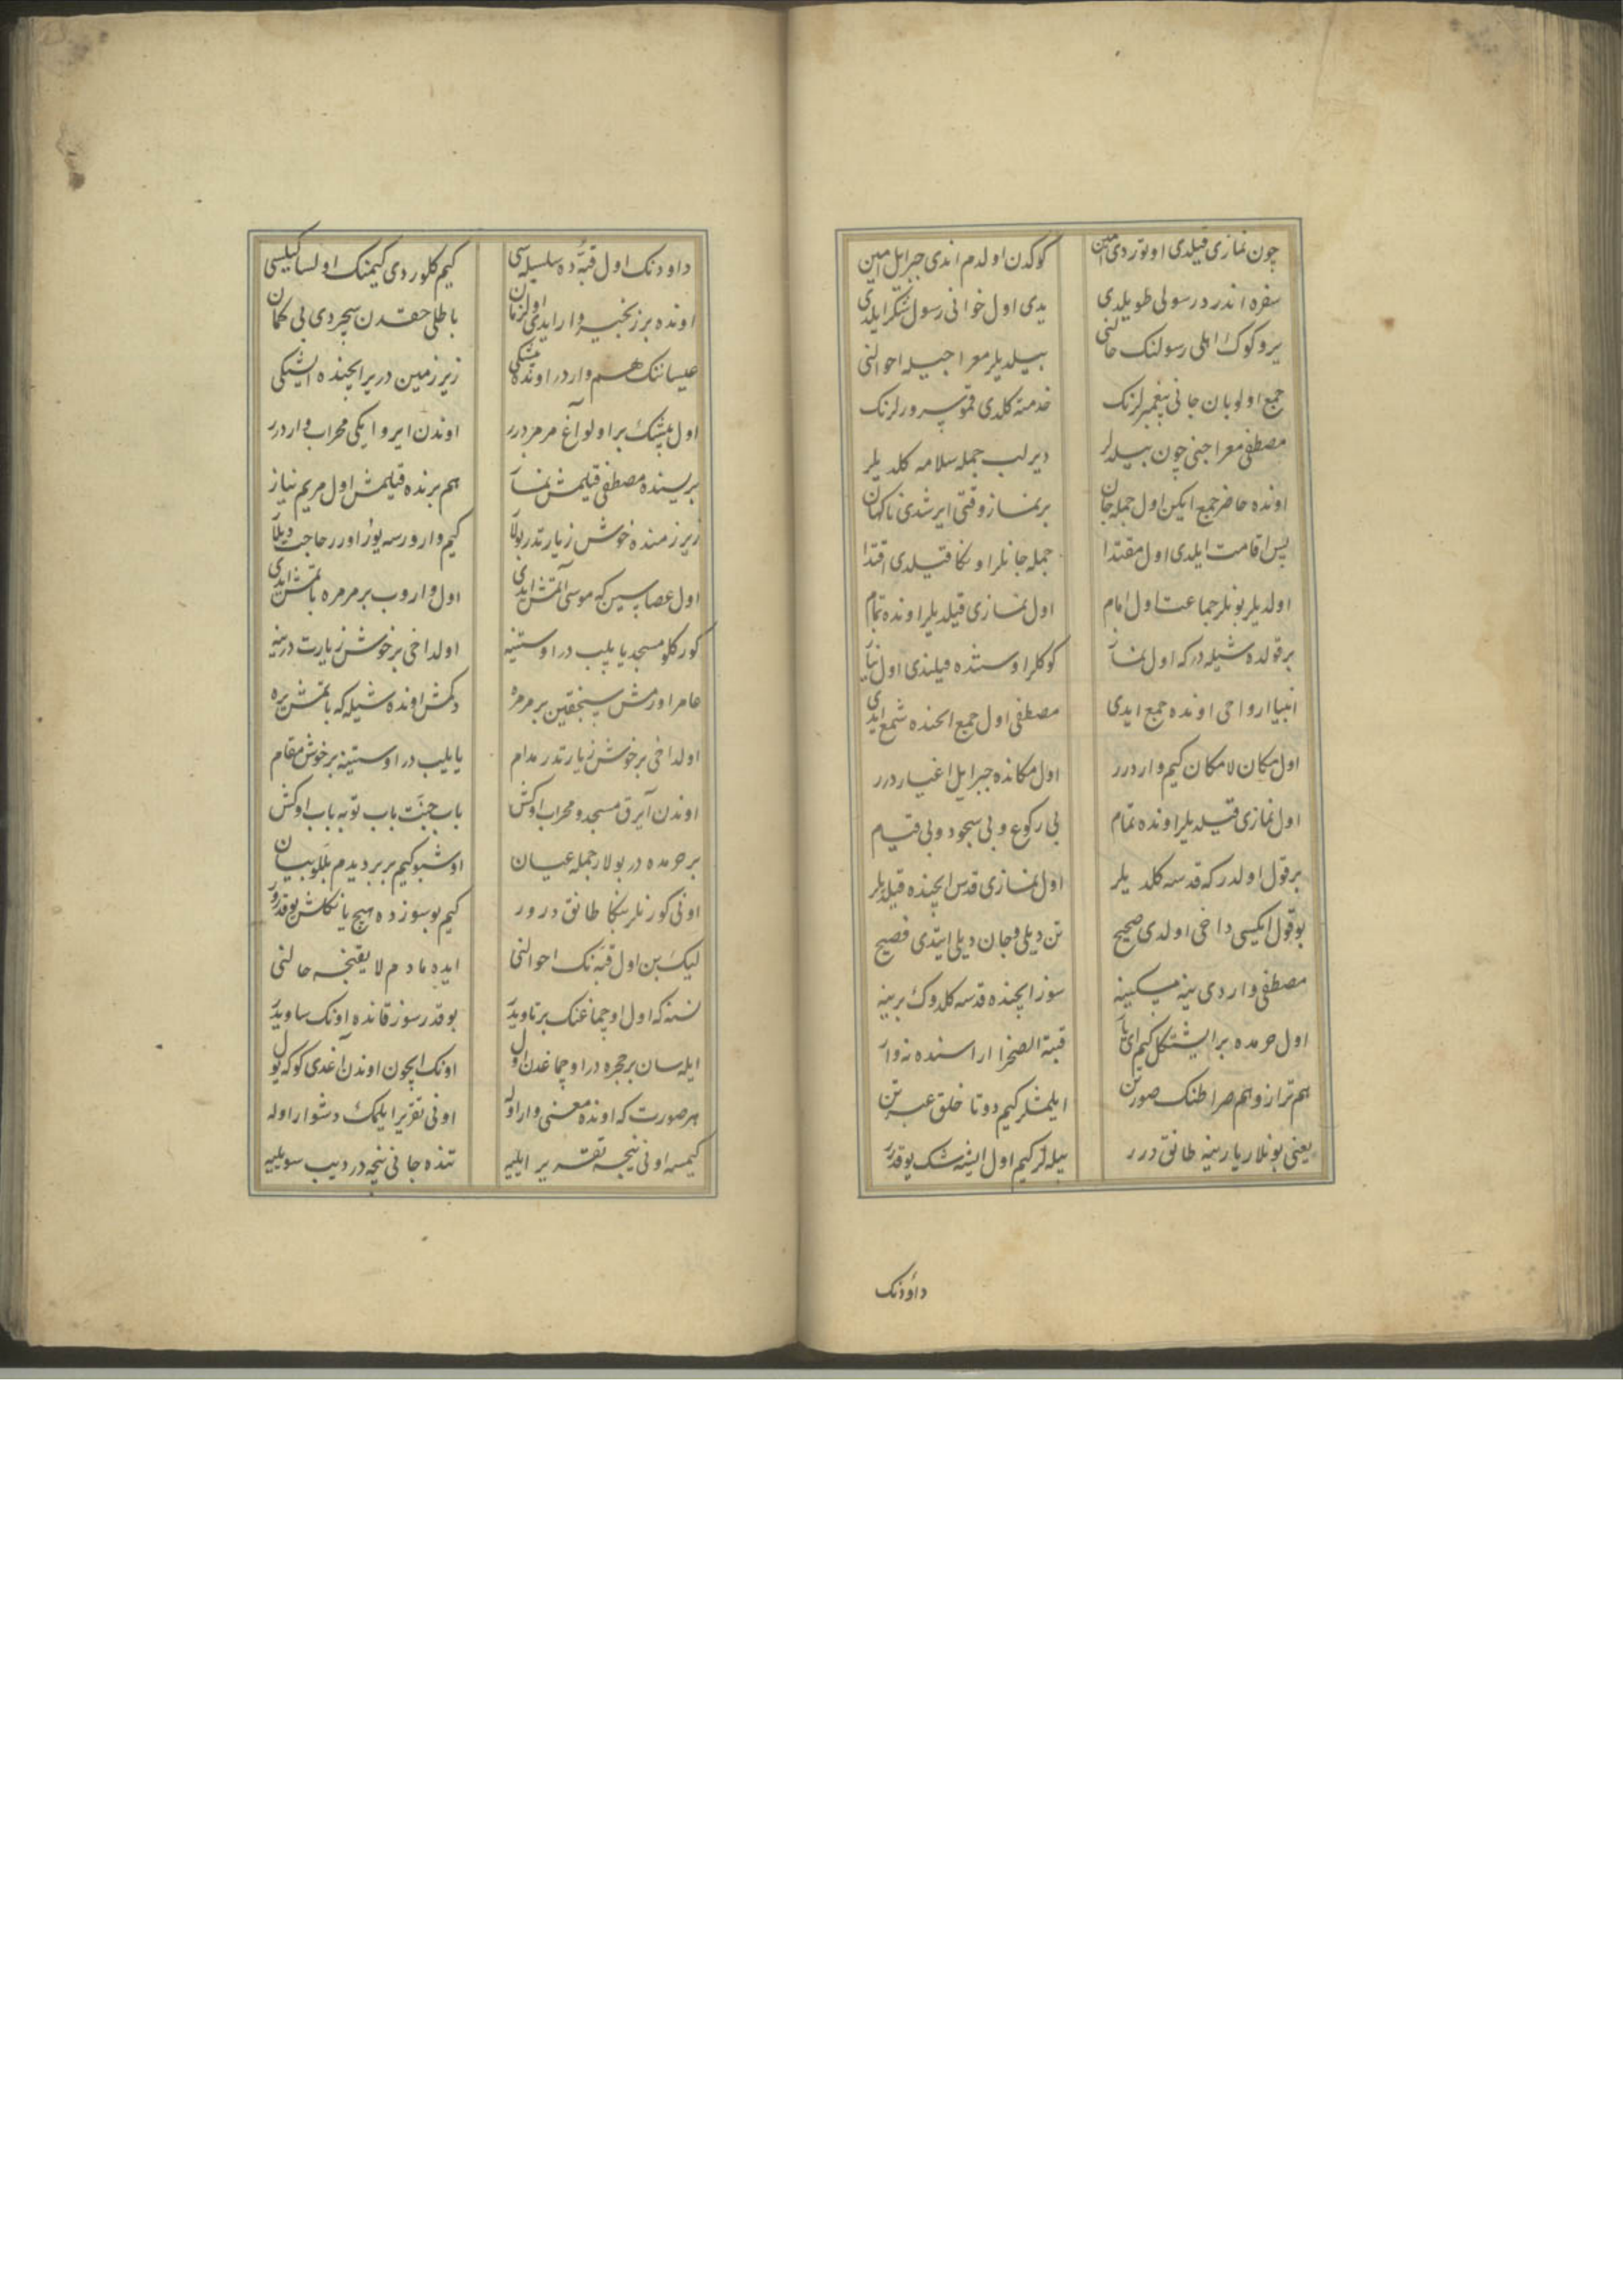 چون نمازی قیلدی اوتوردی امین کوکدن اولدم اندی جبرایل امین
سفره اندر در رسولی طویلدی یدی اول خوانی رسول شکر ایلدی
یر و کوک اهلی رسولنک حالنی بیلدیلر معراجیله احوالنی
جمع اولوبان جانی پیغمبرلرنک خدمته کلدی قمو سرورلرنک
مصطفی معراجنی چون بیلدلر دیرلب جمله سلامه کلدیلر
اونده حاضر جمع ایکن اول جمله جان بر نماز وقتی ایرشدی ناکهان
پس اقامت ایلدی اول مقتدا جمله جانلر اونکا قیلدی اقتدا
اولدیلر بونلر جماعت اول امام اول نمازی قیلدیلر اونده تمام
بر قولده شیله درکه اول نماز کوکلر اوستنده قیلندی اول نیاز
انبیا ارواحی اونده جمع ایدی مصطفی اول جمع ایچنده شمع ایدی
اول مکان لامکان کیم واردرر اول مکانده جبرایل اغیاردرر
اول نمازی قیلدیلر اونده تمام بی رکوع و بی سجود و بی قیام
بر قول اولدر که قدسه کلدیلر اول نمازی قدس ایچنده قیلدیلر
بو قول ایکیسی داخی اولدی صحیح تن دیلی و جان دیلی ایتدی فصیح
مصطفی واردی ینه مسکینه سوز ایچنده قدسه کلدوک بر ینه
اول حرمده بر ایشتکل کیم ای یار قبة الصخرا اراسنده نه وار
هم ترازو هم صراطنک صورتن ایلمشلر کیم دوتا خلق عبرتن
یعنی بونلار یارینه طانق درر بیله لر کیم اول ایشه شک یوقدرر
داودنک
داودنک اول قبه ده سلسله سی کیم کلوردی کیمنک اولسا کیلسی
اونده بر زنجیر وار ایدی اول زمان باطلی حقدن سچردی بی کمان
عیسانک هم واردر اونده بیشکی زیر زمین در یر ایچنده ایشیکی
اول بیشک بر اولو آغ مرمردرر اوندن ایرو ایکی محراب واردرر
بریسنده مصطفی قیلمش نماز هم برنده قیلمش اول مریم نیاز
زیر زمنده خوش زیارتدر بولار کیم وارورسه یوز اورر حاجت دیلار
اول عصاسین که موسی آلمش ایدی اول واروب بر مرمره باتمش ایدی
کورکلو مسجد یاپیلب در اوستینه اولداخی بر خوش زیارت در ینه
عامر اورمش سنجقین بر مرمره دکمش اونده شیله که باتمش یره
اولداخی بر خوش زیارتدر مدام یاپیلب در اوستینه بر خوش مقام
اوندن آیرق مسجد و محراب اوکش باب جنت باب توبه باب اوکش
بر حرمده در بولار جمله عیان اوشبو کیم بر بر دیدم بللو بیان
اونی کورنلر بنکا طانق درور کیم بو سوزده هیچ یانکلش یوقدرور
لیک بن اول قبه نک احوالنی ایده مادم لایقنجه حالنی
نسنه که اول اوچماغنک بر تاویدر بو قدر سوز قانده آونک ساویدر
ایله سان بر حجره در اوچماغدن اول اونک ایچون اوندن آغدی کوکه یول
هر صورت که اونده معنی وار اوله اونی تقریر ایلمک دشوار اوله
کیمسه اونی نیجه تقریر ایلییه تنده جانی نیجه در دیب سویلییه